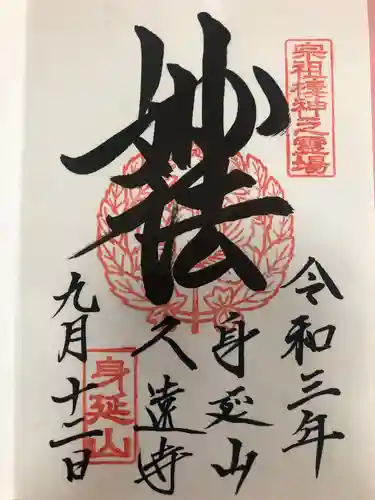 宗祖棲神之霊場
妙法
令和三年
身延山
久遠寺
九月十二日
身延山